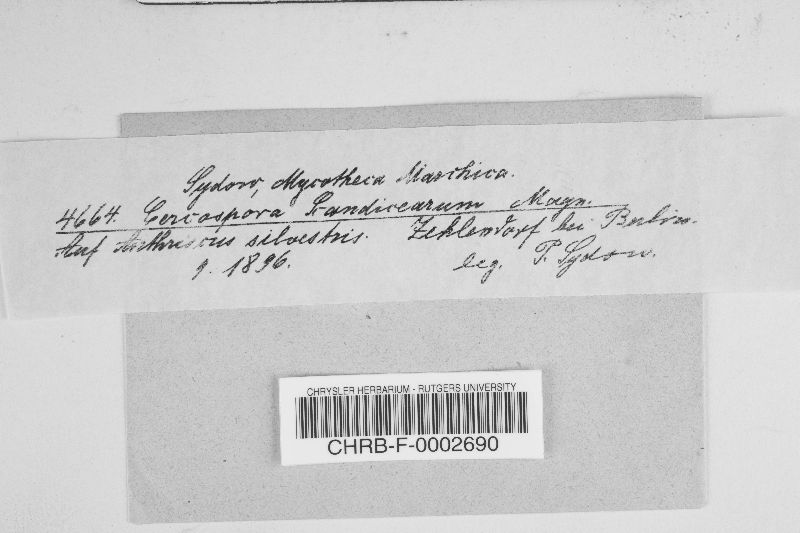 Sydow, Mycotheca Marchica.
4664. Cercospora Scandicearum Magn.
Auf Anthriscus silvestris. Zehlendorf bei Berlin.
9. 1896. leg. P. Sydow.
CHRYSLER HERBARIUM - RUTGERS UNIVERSITY
CHRB-F-0002690